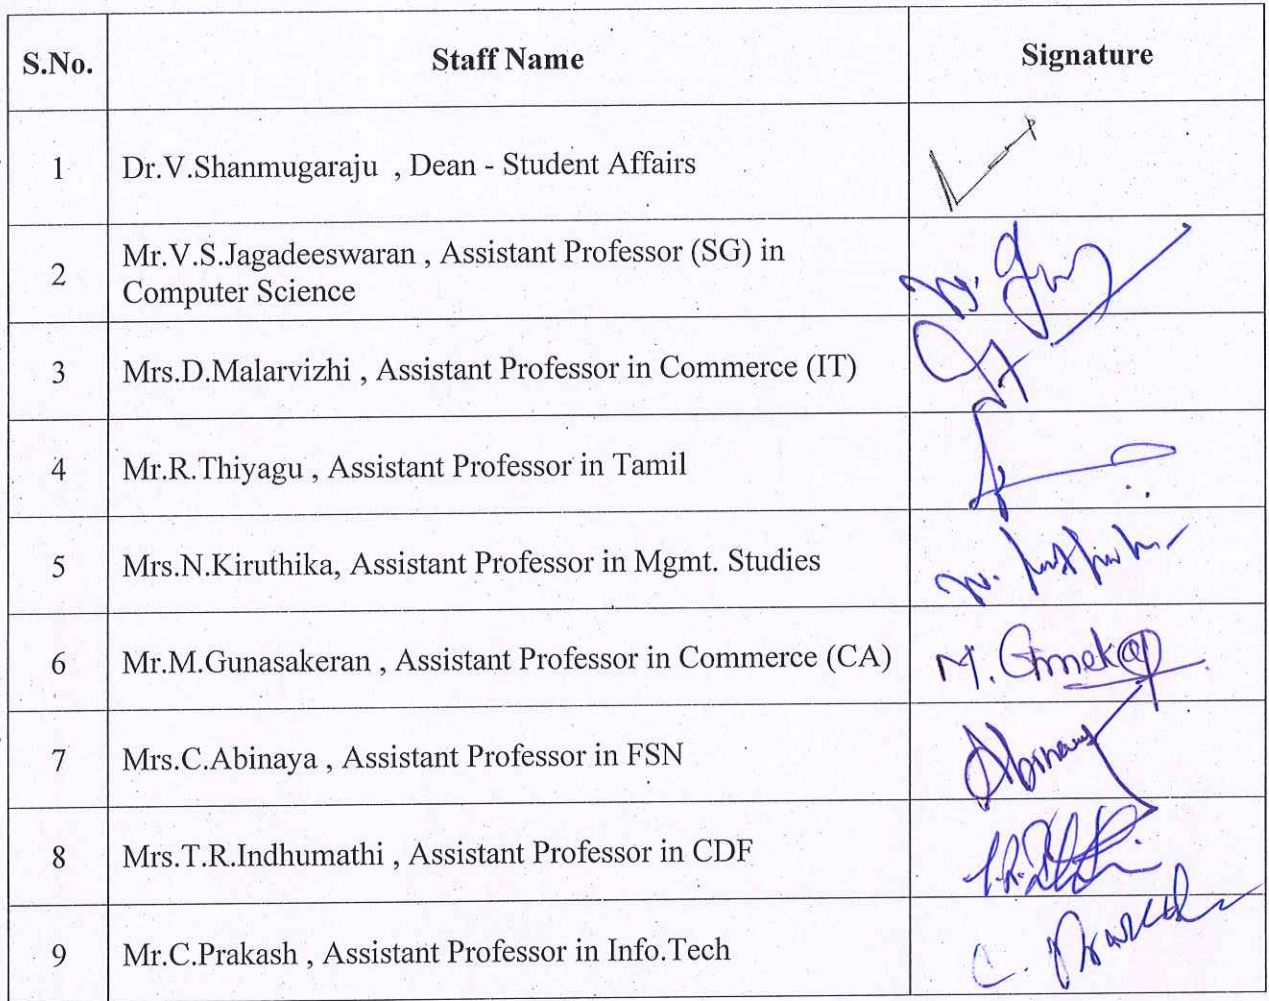 S.No. Staff Name Signature
1 Dr.V.Shanmugaraju , Dean - Student Affairs
2 Mr.V.S.Jagadeeswaran , Assistant Professor (SG) in
Computer Science
3 Mrs.D.Malarvizhi , Assistant Professor in Commerce (IT)
4 Mr.R.Thiyagu , Assistant Professor in Tamil
5 Mrs.N.Kiruthika, Assistant Professor in Mgmt. Studies
6 Mr.M.Gunasakeran , Assistant Professor in Commerce (CA) M.
7 Mrs.C.Abinaya , Assistant Professor in FSN Abinaya
8 Mrs.T.R.Indhumathi , Assistant Professor in CDF
9 Mr.C.Prakash , Assistant Professor in Info.Tech C. Prakash